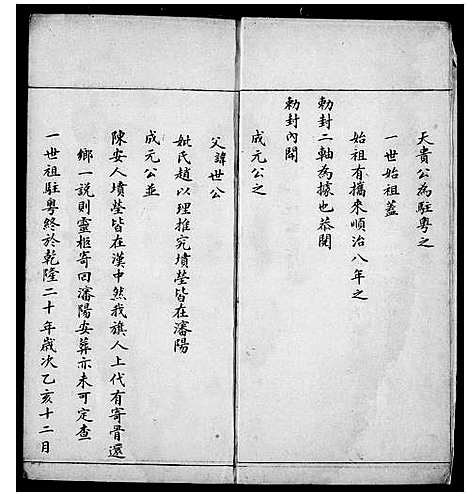 天貴公為駐粵之
一世始祖蓋
始祖有攜來順治八年之
勅封二軸為據也恭閱
勅封內開
成元公之
父諱世公
妣氏趙以理推究墳塋皆在瀋陽
成元公並
陳安人墳塋皆在漢中然我旗人上代有寄骨還
鄉一說則靈柩寄回瀋陽安葬亦未可定查
一世祖駐粵終於乾隆二十年歲次乙亥十二月